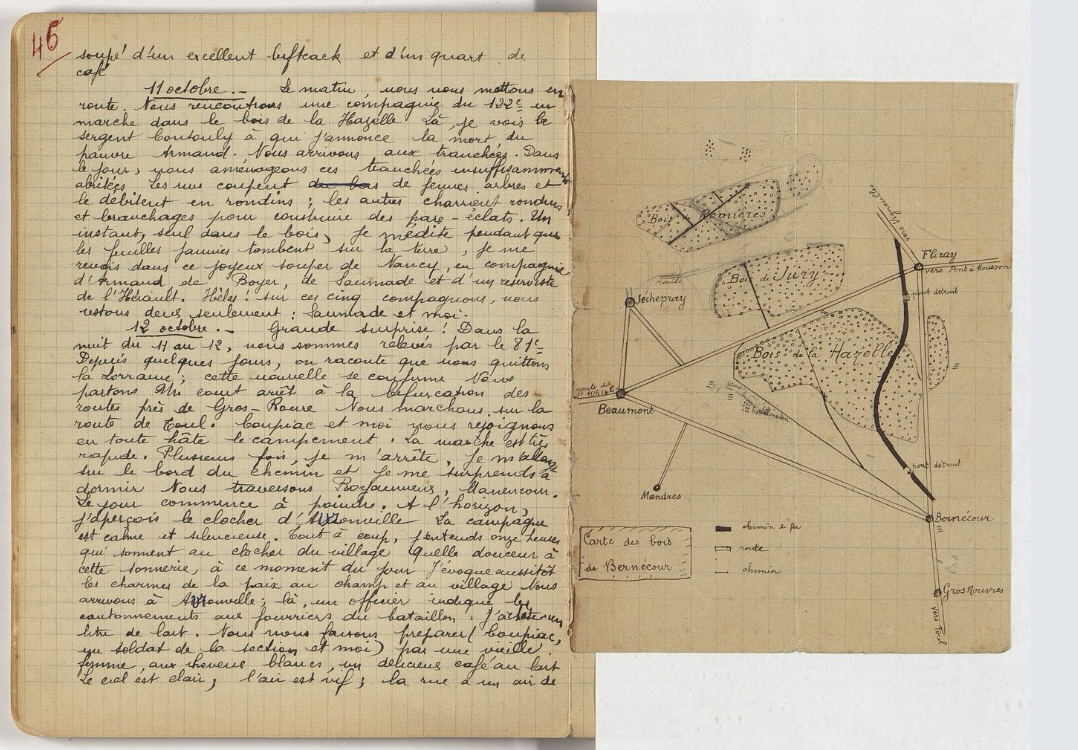 45
soupé d'un excellent bifteack et d'un quart de
café
11 octobre. - Le matin, nous nous mettons en
route. Nous rencontrons une compagnie du 122e en
marche dans le bois de la Hazelle Là, je vois le
sergent Coutouly à qui j'annonce la mort du
pauvre Armand. Nous arrivons aux tranchées. Dans
le jour, nous aménageons ces tranchées insuffisamment
abritées Les uns coupent de jeunes arbres et
le débitent en rondins ; les autres charrient rondins
et branchages pour construire des pare-éclats. Un
instant, seul dans le bois, je médite pendant que
les feuilles jaunies tombent sur la terre, je me
revois dans ce joyeux souper de Nancy, en compagnie
d'Armand, de Boyer, de Saumade et d'un réserviste
de l'Hérault. Hélas ! sur ces cinq compagnons, nous
restons deux seulement : Saumade et moi.
12 octobre. - Grande surprise ! Dans la
nuit du 11 au 12, nous sommes relevés par le 81e
Depuis quelques jours, on raconte que nous quittons
la Lorraine ; cette nouvelle se confirme Nous
partons Un court arrêt à la bifurcation des
routes près de Gros-Rouvre Nous marchons sur la
route de Toul. Coupiac et moi nous rejoignons
en toute hâte le campement. La marche est très
rapide. Plusieurs fois, je m'arrête, je m'allonge
sur le bord du chemin et je me surprends à
dormir Nous traversons
Le jour commence à poindre. A l'horizon,
j'aperçois le clocher La campagne
est calme et silencieuse. Tout à coup, j'entends onze heures
qui sonnent au clocher du village Quelle douceur à
cette sonnerie, à ce moment du jour J'évoque aussitôt
les charmes de la paix au champ et au village Nous
arrivons à là, un officier indique les
cantonnements aux fourriers du bataillon. J'achète un
litre de lait. Nous nous faisons préparer (Coupiac,
un soldat de la section et moi) par une vieille
femme, aux cheveux blancs, un délicieux café au lait
Le ciel est clair ; l'air est vif ; la rue a un air de
Bois de Remières
Bois de Jury
route
Flirey
vers Pont à Mousson
pont détruit
Seichepray
Bois de la Hazelle
route de
St Mihiel
Beaumont
pont détruit
Mandres
Bernécour
Carte des bois
de Bernécour
chemin de fer
route
chemin
Gros Rouvres
vers Toul